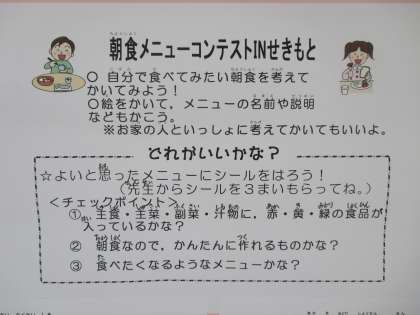 朝食メニューコンテストINせきもと
○ 自分で食べてみたい朝食を考えて
かいてみよう！
○絵をかいて，メニューの名前や説明
などもかこう。
※お家の人といっしょに考えてかいてもいいよ。
どれがいいかな？
☆よいと思ったメニューにシールをはろう！
（先生からシールを３まいもらってね。）
＜チェックポイント＞
① 主食・主菜・副菜・汁物に，赤・黄・緑の食品が
入っているかな？
② 朝食なので，かんたんに作れるものかな？
③ 食べたくなるようなメニューかな？